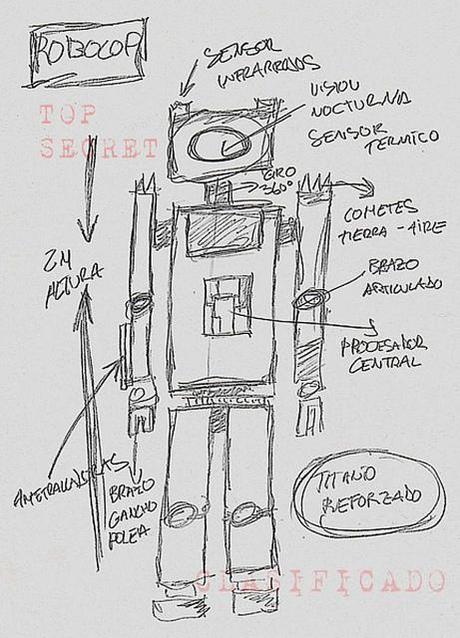 ROBOCOP
SENSOR
INFRARROJOS
TOP
SECRET
VISION
NOCTURNA
SENSOR
TERMICO
GIRO
360°
COHETES
TIERRA - AIRE
2M
ALTURA
BRAZO
ARTICULADO
PROCESADOR
CENTRAL
AMETRALLADORAS
BRAZO
GANCHO
POLEA
TITANIO
REFORZADO
CLASIFICADO